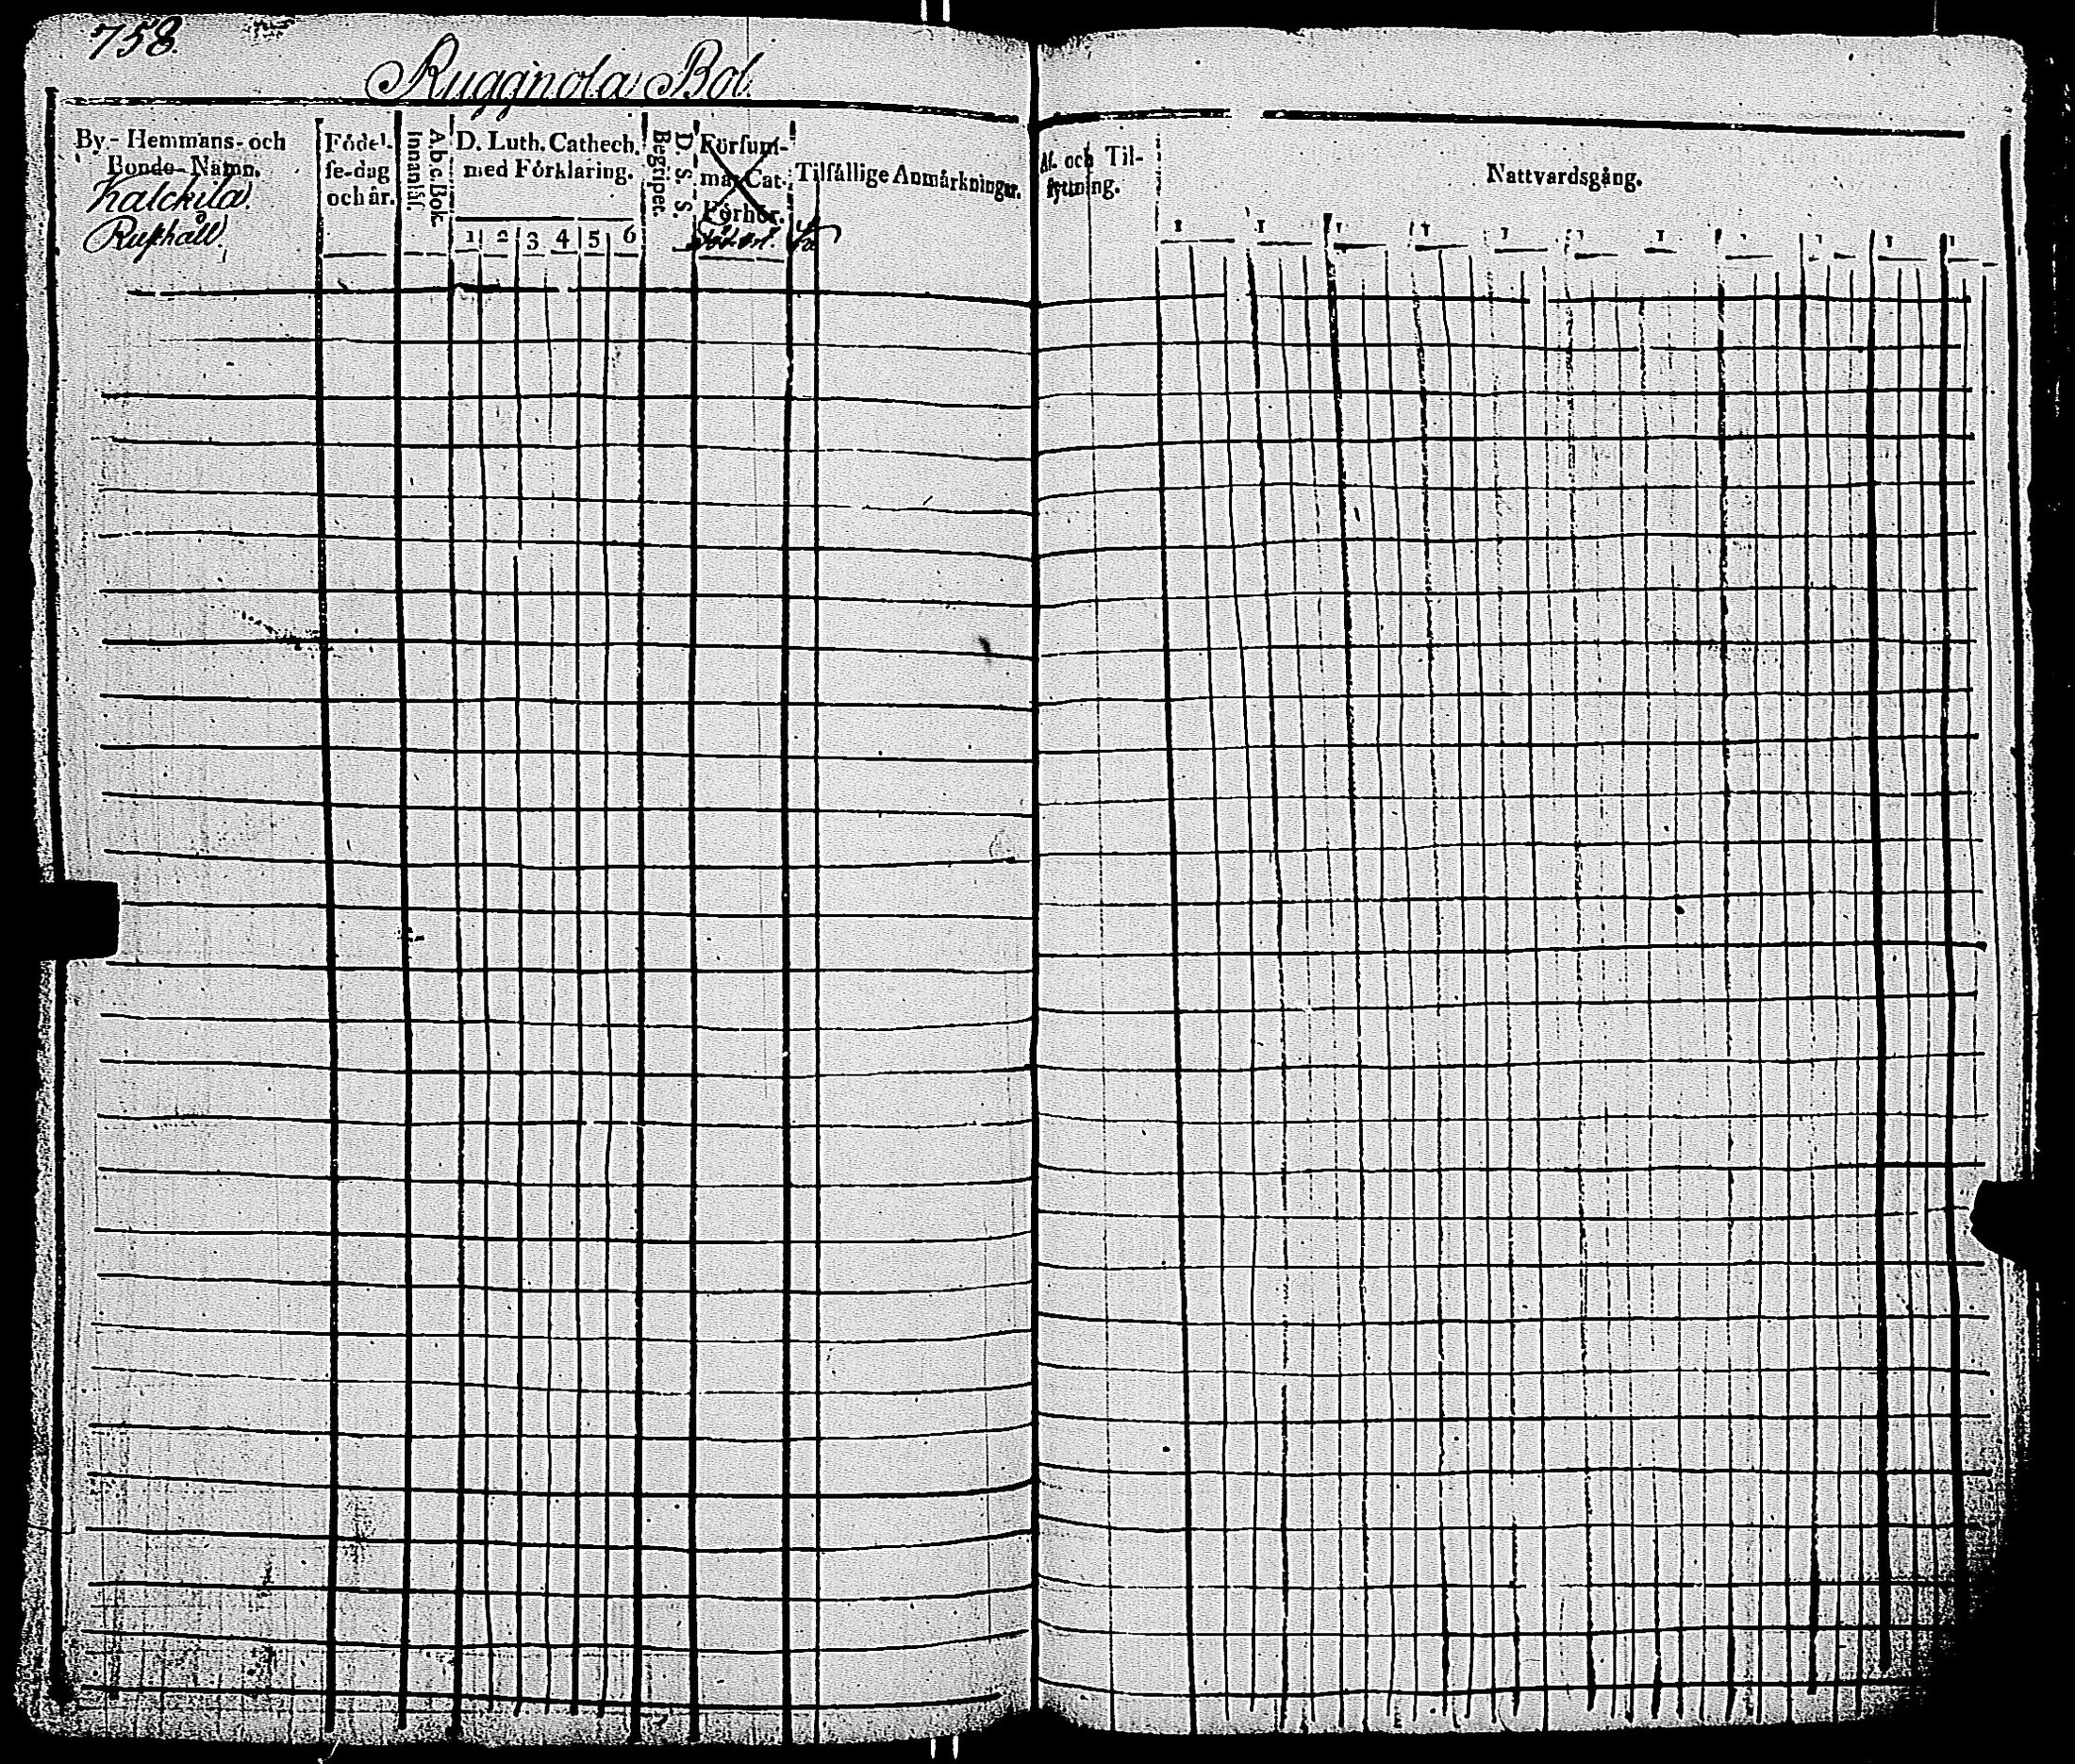 758.
Ruggnola Bol.
By- Hemmans- och
Bonde-Namn.
Kalckila
Rusthåll.
Födel-
se-dag
och år.
A.b.c.Bok.
Innantil.
D. Luth. Cathech.
med Förklaring.
1 2 3 4 5 6
D. S. S.
Begripet.
Försum-
mar Cat.
Förhör.
Tilfällige Anmärkningar.
Af. och Til-
flyttning.
Nattvardsgång.
1 1 1 1 1 1 1 1 1 1 1